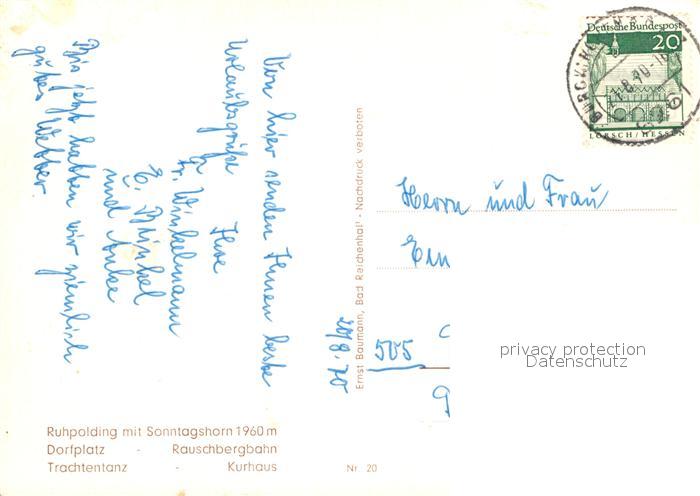 Deutsche Bundespost
20
LORSCH/HESSEN
Von hier senden Ihnen beste
Urlaubsgrüße
Ihre
Fr. Winkelmann
E. Dinkel
und Anke
Bis jetzt hatten wir ziemlich
gutes Wetter.
20/8.70
Ernst Baumann, Bad Reichenhall - Nachdruck verboten
Herrn und Frau
505
privacy protection
Datenschutz
Ruhpolding mit Sonntagshorn 1960 m
Dorfplatz - Rauschbergbahn
Trachtentanz - Kurhaus
Nr. 20